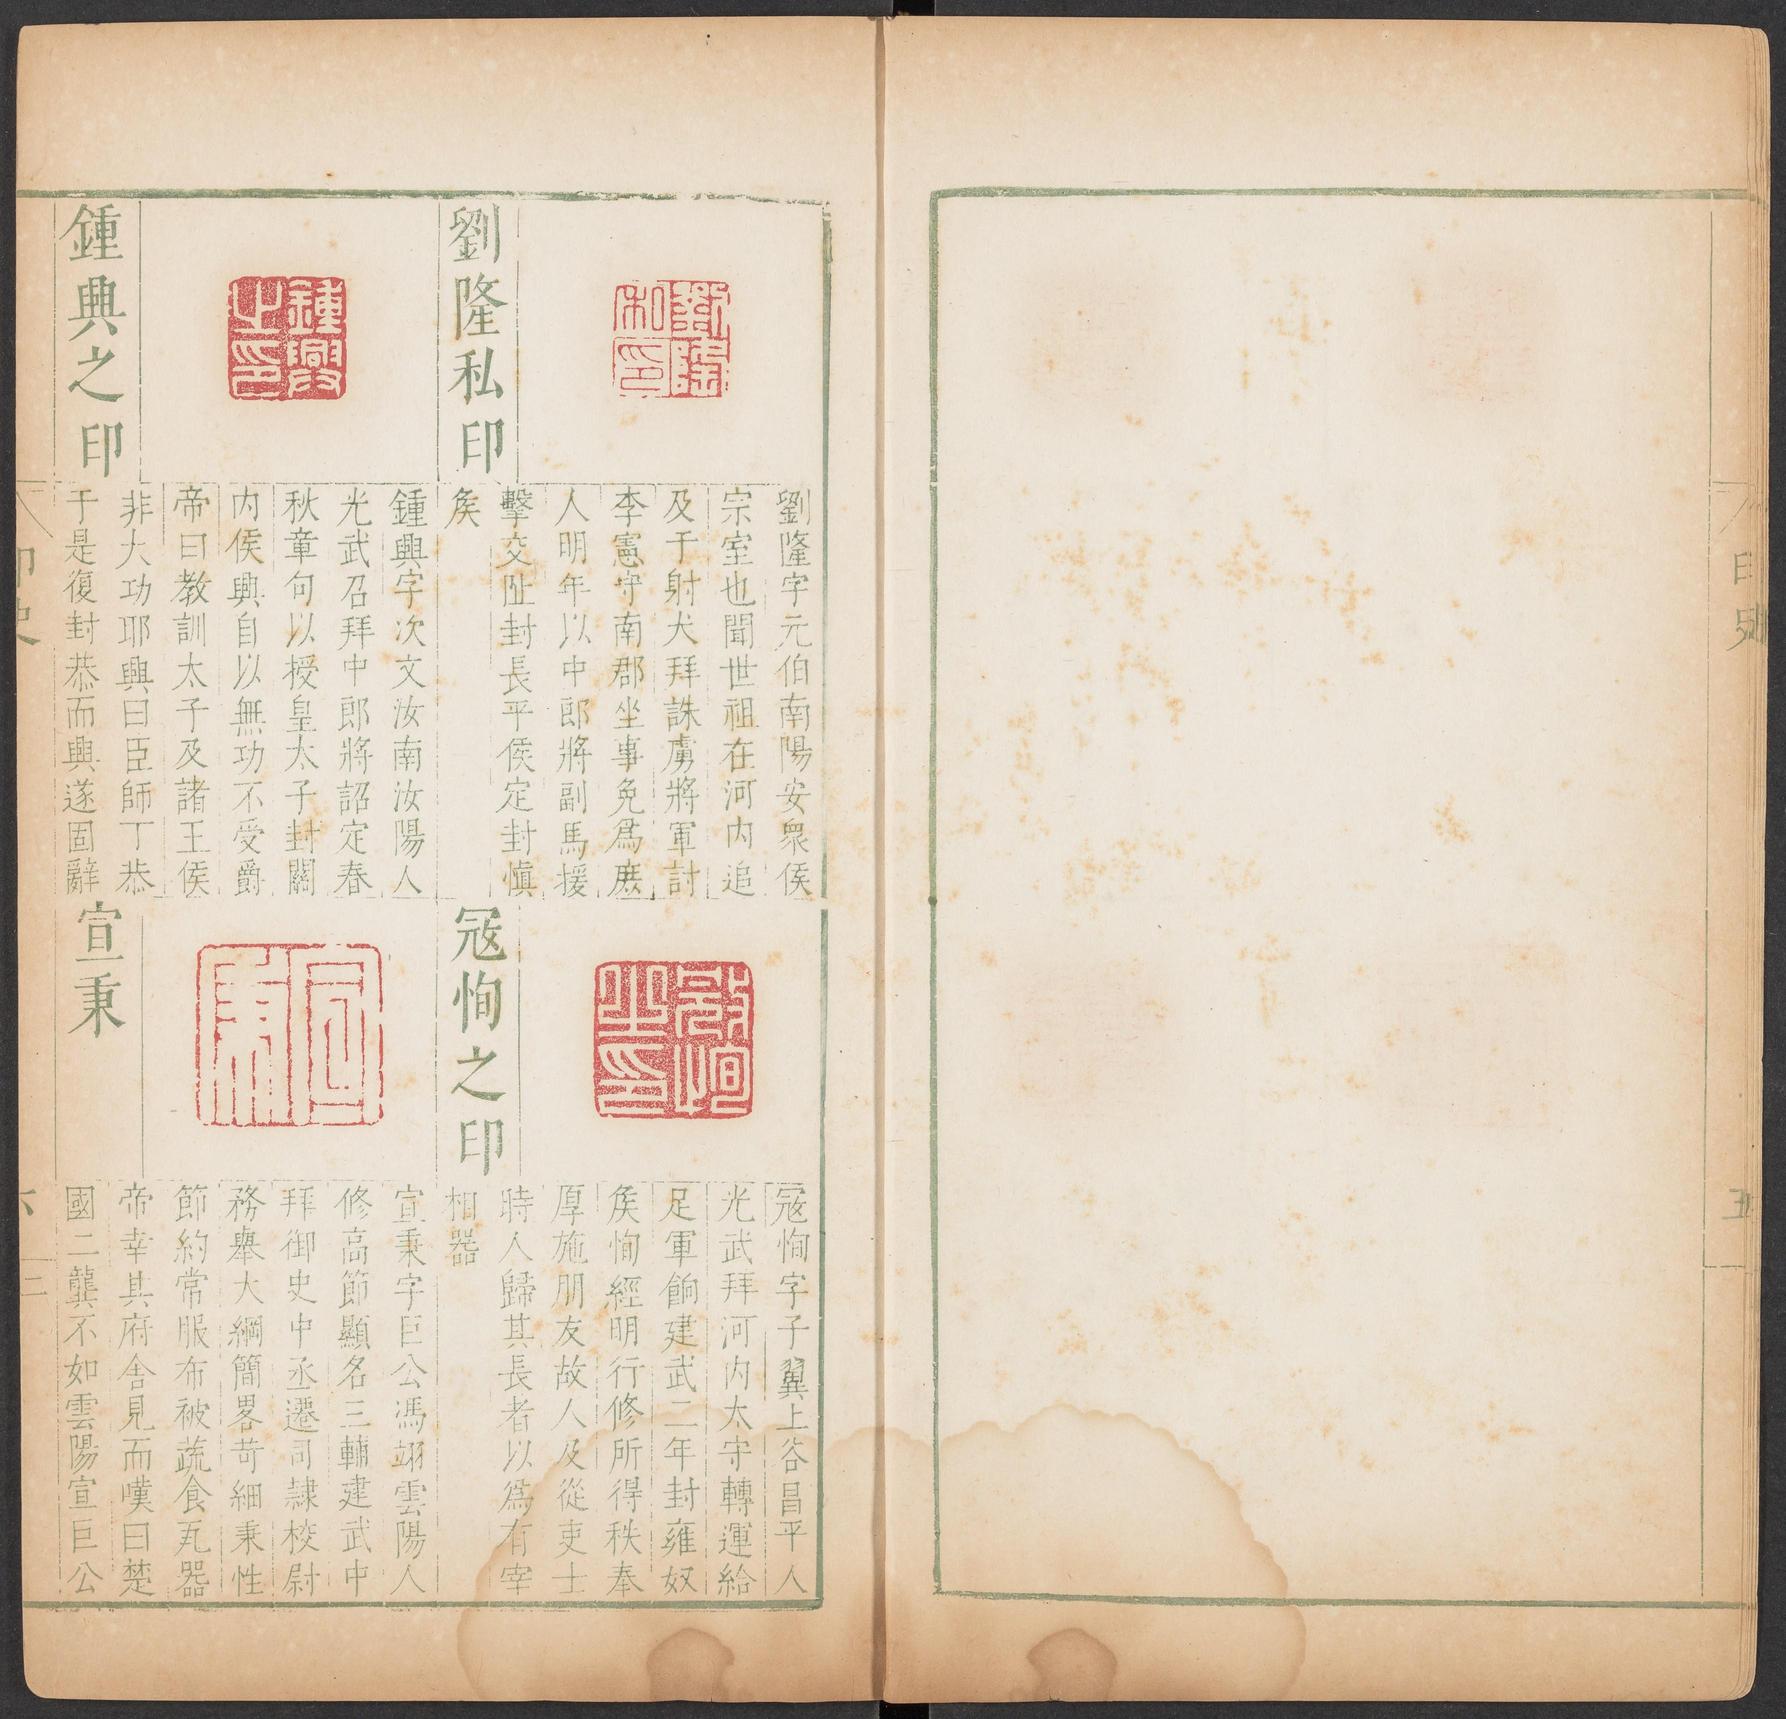 印史
五
劉隆私印
劉隆字元伯南陽安衆侯
宗室也聞世祖在河内追
及于射犬拜誅虜將軍討
李憲守南郡坐事免爲庶
人明年以中郎將副馬援
擊交阯封長平侯定封慎
矦
鍾興之印
鍾興字次文汝南汝陽人
光武召拜中郎將詔定春
秋章句以授皇太子封關
内侯興自以無功不受爵
帝曰教訓太子及諸王侯
非大功耶興曰臣師丁恭
于是復封恭而興遂固辭
冦恂之印
冦恂字子翼上谷昌平人
光武拜河内太守轉運給
足軍餉建武二年封雍奴
矦恂經明行修所得秩奉
厚施朋友故人及從吏士
時人歸其長者以爲有宰
相器
宣秉
宣秉字巨公馮翊雲陽人
修高節顯名三輔建武中
拜御史中丞遷司隸校尉
務舉大綱簡畧苛細秉性
節約常服布被蔬食瓦器
帝幸其府舍見而嘆曰楚
國二龔不如雲陽宣巨公
印史
六